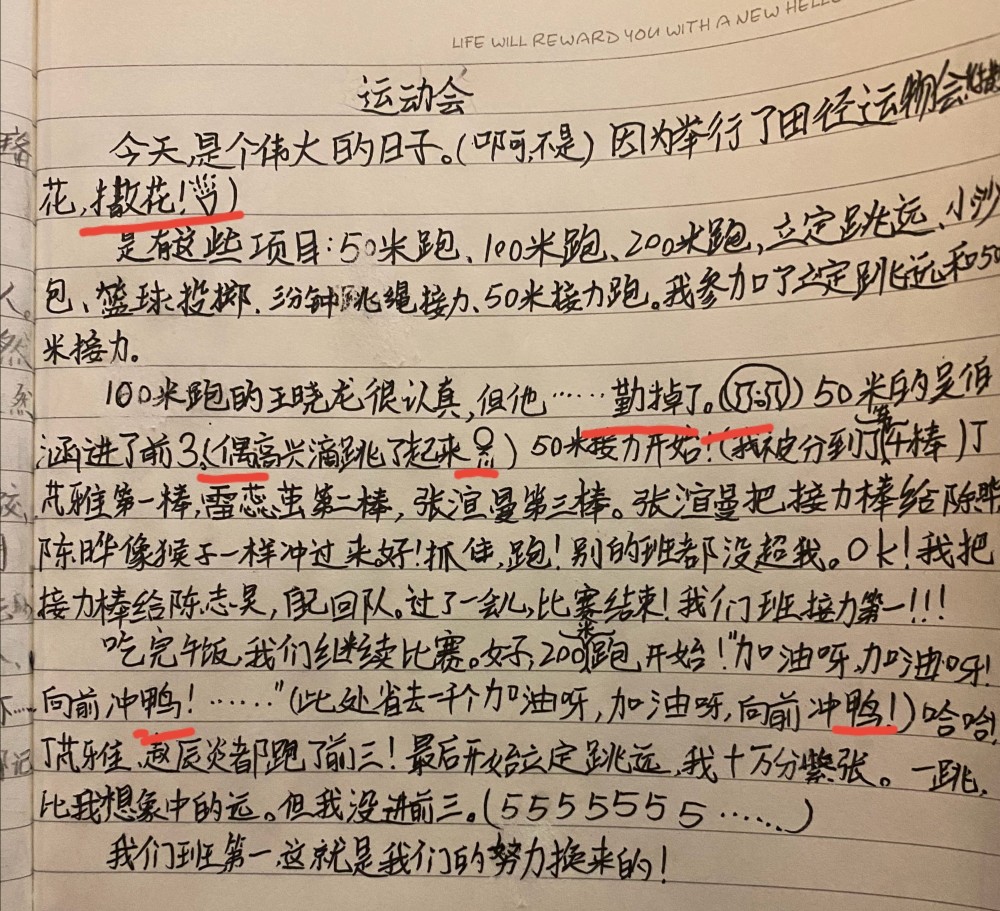 LIFE WILL REWARD YOU WITH A NEW HELLO
运动会
今天,是个伟大的日子。(啊呵,不是)因为举行了田径运物会
花,撒花!)
是有这些项目:50米跑、100米跑、200米跑、立定跳远、小沙
包、篮球投掷、三分钟跳绳接力、50米接力跑。我参加了立定跳远和50
米接力。
100米跑的王晓龙很认真,但他……勤掉了。(T.T) 50米的吴佰
涵进了前3。(偶高兴滴跳了起来) 50米接力开始!(我被分到了第4棒)丁
芃雅第一棒,雷蕊茧第二棒,张渲曼第三棒。张渲曼把接力棒给陈晔
陈晔像猴子一样冲过来。好!抓住,跑!别的班都没超我。Ok!我把
接力棒给陈志昊,自己回队。过了一会儿,比赛结束!我们班接力第一!!!
吃完午饭,我们继续比赛。好了,200米跑开始!"加油呀,加油呀!
向前冲鸭!……"(此处省去一千个加油呀,加油呀,向前冲鸭!)哈哈!
丁芃雅、赵辰炎都跑了前三!最后开始立定跳远,我十万分紧张。一跳,
比我想象中的远。但我没进前三。(5555555……)
我们班第一,这就是我们的努力换来的!